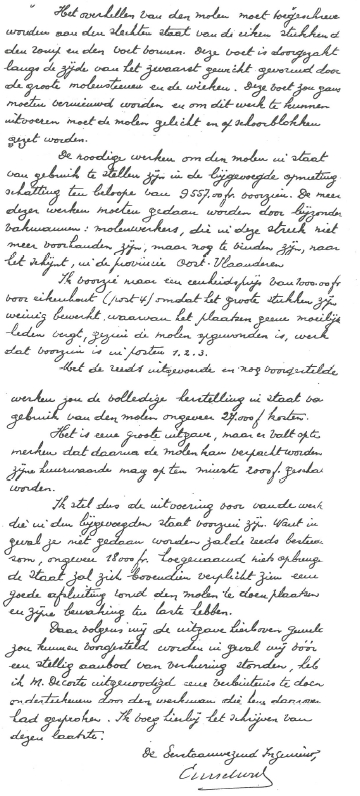 Het overhellen van den molen moet toegeschreven
worden aan den slechten staat van de eiken stukken d
den romp en den voet vormen. Deze voet is doorgezakt
langs de zijde van het zwaarst gewicht gevormd door
de groote molensteenen en de wieken. Deze voet zou gans
moeten vernieuwd worden en om dit werk te kunnen
uitvoeren moet de molen gelicht en op schoorblokken
gezet worden.
De noodige werken om den molen in staat
van gebruik te stellen zijn in de bijgevoegde opmeting
schatting ten beloope van 9557.00 fr. voorzien. De meer
dezer werken moeten gedaan worden door bijzondere
vakmannen: molenwerkers, die in deze streek niet
meer voorhanden zijn, maar nog te vinden zijn, naar
het schijnt, in de provincie Oost-Vlaanderen.
Ik voorzie maar een eenheidsprijs van 1000.00 fr
voor eikenhout (post 4) omdat het groote stukken zijn
weinig bewerkt, waarvan het plaatsen geene moeilijk
heden vergt, gezien de molen opgewonden is, werk
dat voorzien is in posten 1.2.3.
Met de reeds uitgevoerde en nog voorgestelde
werken zou de volledige herstelling in staat va
gebruik van den molen ongeveer 27.000 f kosten.
Het is eene groote uitgave, maar er valt op te
merken dat daarna de molen kan verpacht worden
zijne huurwaarde mag op ten minste 2000 f. geschat
worden.
Ik stel dus de uitvoering voor van de werk
die in den bijgevoegden staat voorzien zijn. Want in
geval ze niet gedaan worden zal de reeds besteed
som, ongeveer 18000 fr. hoegenaamd niets opbreng
de Staat zal zich bovendien verplicht zien eene
goede afsluiting rond den molen te doen plaatsen
en zijne bewaking ten laste hebben.
Daar volgens mij de uitgave hierboven
zou kunnen voorgesteld worden in geval wij vóór
een stellig aanbod van verhuring stonden, heb
ik M. Decorte uitgenoodigd eene verbintenis te doen
onderteekenen door den werkman die hem daarover
had gesproken. Ik voeg hierbij het schrijven van
dezen laatste.
De Eerstaanwezend Ingenieur,